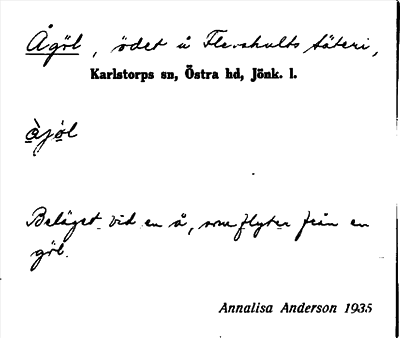 Ågöl, ödet å Flexhults säteri,
Karlstorps sn, Östra hd, Jönk. l.
åjö̀l
Beläget vid en å, som flyter från en
göl.
Annalisa Anderson 1935